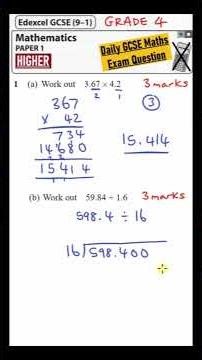 Edexcel GCSE (9–1) GRADE 4
Mathematics
PAPER 1
HIGHER
Daily GCSE Maths
Exam Question
1 (a) Work out 3.67 × 4.2 3 marks
2 1
3
367
× 42
734
14680
15414
15.414
(b) Work out 59.84 ÷ 1.6 3 marks
598.4 ÷ 16
16 598.400